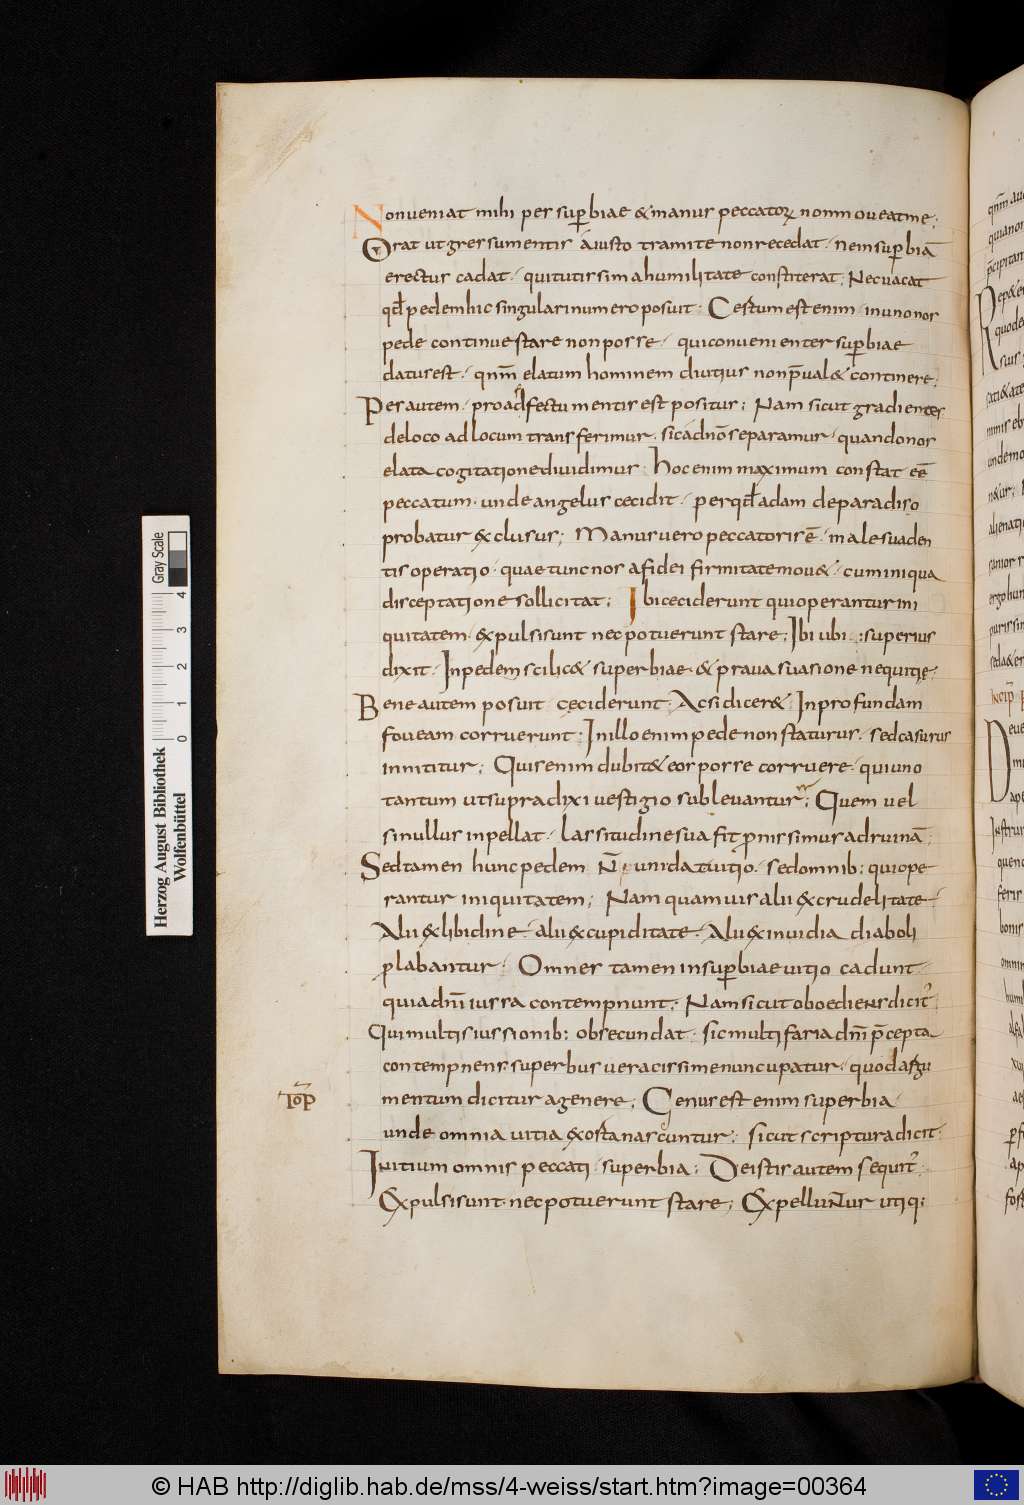 Non ueniat mihi pes sup̄biae & manus peccatoꝝ non moueat me;
Orat ut gressu mentis a iusto tramite non recedat · ne in sup̄biā
erectus cadat · qui tutissima humilitate constiterat; Nec uacat
qd̄ pedem hic singulari numero posuit; Certum est enim · in uno nos
pede continue stare non posse · qui conuenienter sup̄biae
datus est · qnm̄ elatum hominem diutius non p̄ual& continere;
Pes autem · pro adfectu mentis est positus; Nam sicut gradientes
de loco ad locum transferimur · sic a dn̄o separamur · quando nos
elata cogitatione diuidimus; hoc enim maximum constat eē
peccatum · unde angelus cecidit · per qd̄ adam de paradiso
probatur exclusus; Manus uero peccatoris ē · male suaden
tis operatio · quae tunc nos a fidei firmitate mou& · cum iniqua
disceptatione sollicitat; Ibi ceciderunt qui operantur ini
quitatem · expulsi sunt nec potuerunt stare; Ibi ubi superius
dixit · In pedem scilic& superbiae · & praua suasione nequitie ·
Bene autem posuit ceciderunt · Ac si dicer& · In profundam
foueam corruerunt; In illo enim pede non staturus · sed casurus
innititur; Quis enim dubit& eos posse corruere · qui uno
tantum ut supra dixi uestigio subleuantur; Quem uel
si nullus inpellat · lassitudine sua fit p̄nissimus ad ruinā;
Sed tamen hunc pedem N̄ uni dat uitio · sed omnib: qui ope
rantur iniquitatem; Nam quamuis alii ex crudelitate ·
Alii ex libidine · alii ex cupiditate · Alii ex inuidia diaboli
plabantur; Omnes tamen in sup̄biae uitio cadunt ·
quia dn̄i iussa contempnunt; Nam sicut oboediens dicit᷒
Qui multis iussionib: obsecundat · sic multifaria dn̄i p̄cepta
contempnens · superbus ueracissime nuncupatur · quod argu
mentum dicitur a genere; Genus est enim superbia ·
Top̄
unde omnia uitia exorta nascuntur; sicut scriptura dicit ·
Initium omnis peccati · superbia; De istis autem sequit᷒ ·
Expulsi sunt · nec potuerunt stare; Expelluntur utiq;
Herzog August Bibliothek
Wolfenbüttel
Gray Scale
0 1 2 3 4
© HAB http://diglib.hab.de/mss/4-weiss/start.htm?image=00364